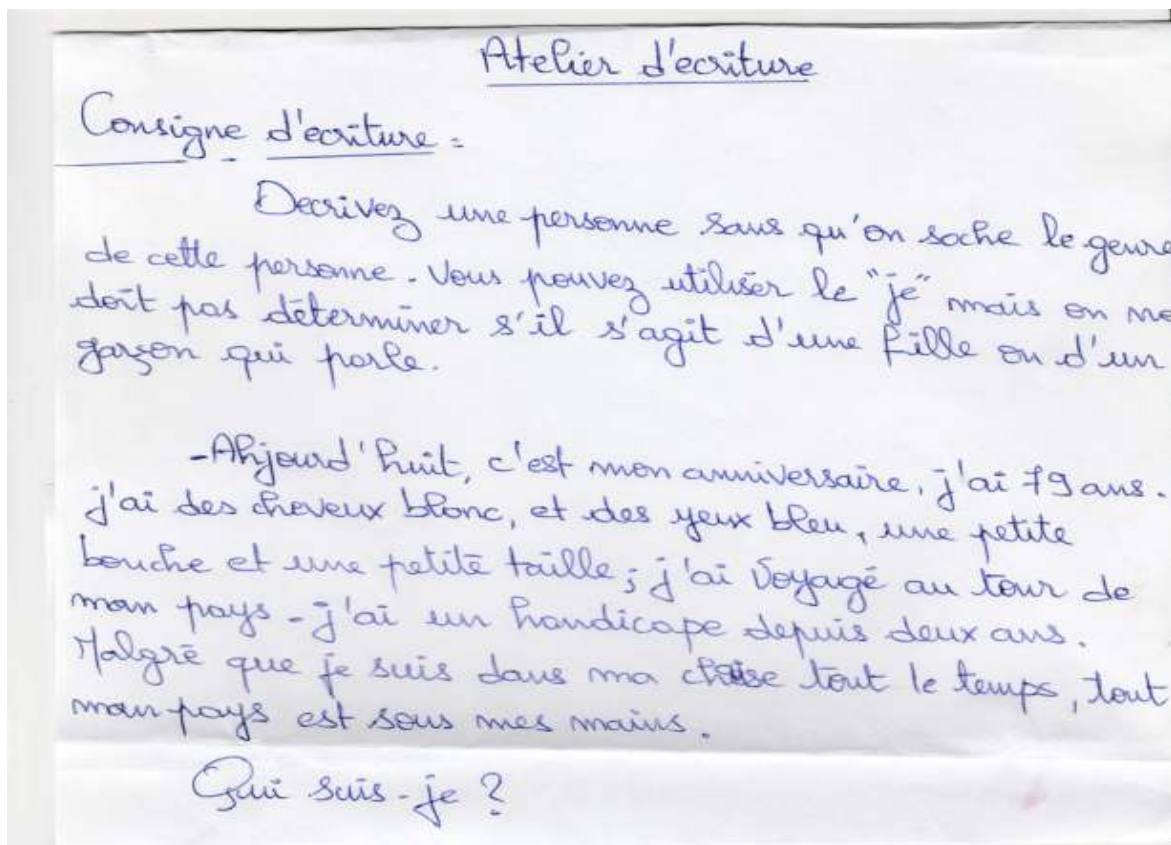 Atelier d'ecriture
Consigne d'ecriture :
Decrivez une personne sans qu'on sache le genre
de cette personne. Vous pouvez utiliser le "je" mais on ne
doit pas déterminer s'il s'agit d'une fille ou d'un
garçon qui parle.
-Ahjourd'huit, c'est mon anniversaire, j'ai 79 ans.
j'ai des cheveux blonc, et des yeux bleu, une petite
bouche et une petite taille ; j'ai voyagé au tour de
mon pays - j'ai un handicape depuis deux ans.
Malgré que je suis dans ma chaise tout le temps, tout
mon pays est sous mes mains.
Qui suis-je ?